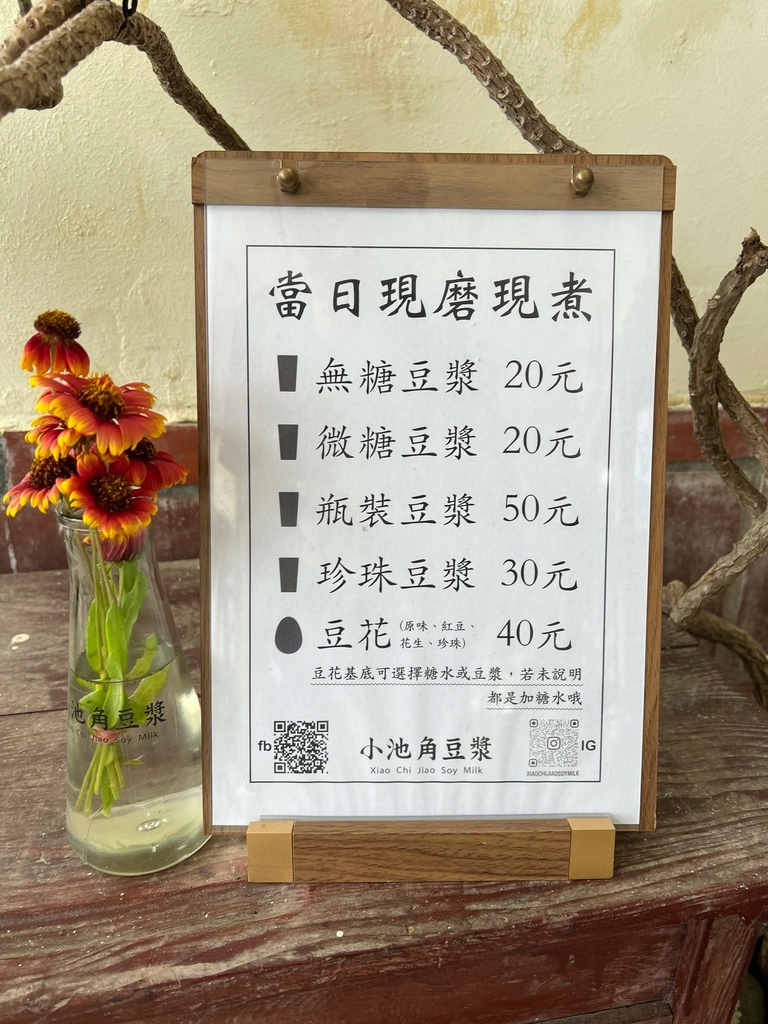 當日現磨現煮
無糖豆漿 20元
微糖豆漿 20元
瓶裝豆漿 50元
珍珠豆漿 30元
豆花 (原味、紅豆、花生、珍珠) 40元
豆花基底可選擇糖水或豆漿，若未說明
都是加糖水哦
fb
小池角豆漿
Xiao Chi Jiao Soy Milk
IG
XIAOCHIJIAOSOYMILK
池角豆漿
Chi Jiao Soy Milk